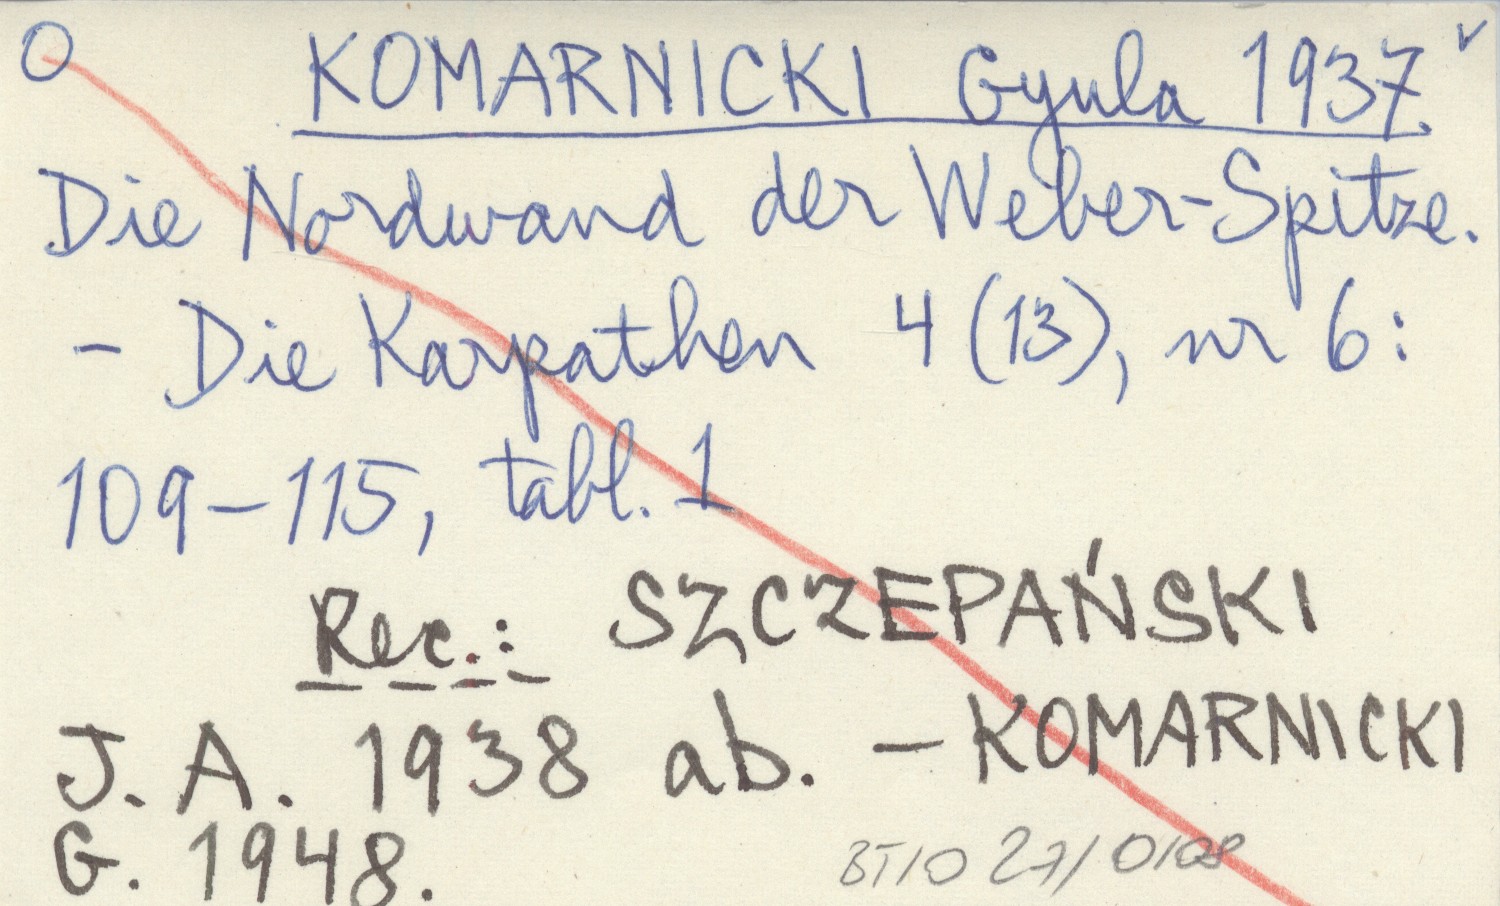 O KOMARNICKI Gyula 1937. v
Die Nordwand der Weber-Spitze.
- Die Karpathen 4 (13), nr 6:
109-115, tabl. 1
Rec.: SZCZEPAŃSKI
J. A. 1938 ab. - KOMARNICKI
G. 1948.
BT10 27/0108